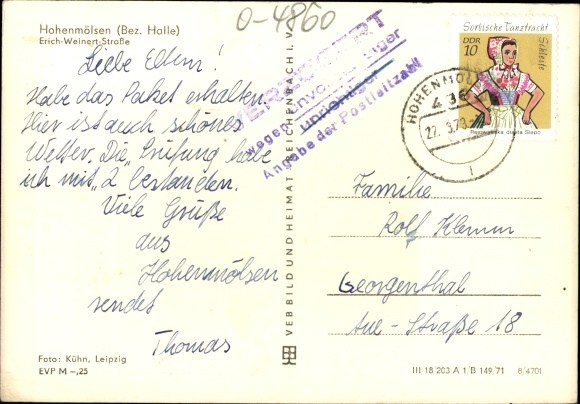 Hohenmölsen (Bez. Halle)
Erich-Weinert-Straße
O-4860
Liebe Eltern!
Habe das Paket erhalten.
Hier ist auch schönes
Wetter. Die Prüfung habe
ich mit "2" bestanden.
Viele Grüße
aus
Hohenmölsen
sendet
Thomas
Foto: Kühn, Leipzig
EVP M –,25
VEB BILD UND HEIMAT REICHENBACH I. V.
VERZÖGERT
wegen unvollständiger
Angabe der Postleitzahl
Sorbische Tanztracht
DDR
10
Schleife
HOHENMÖL
22.5.73
Familie
Rolf Klemm
Georgenthal
Aue-Straße 18
III 18 203 A 1 B 149/71
8/4701